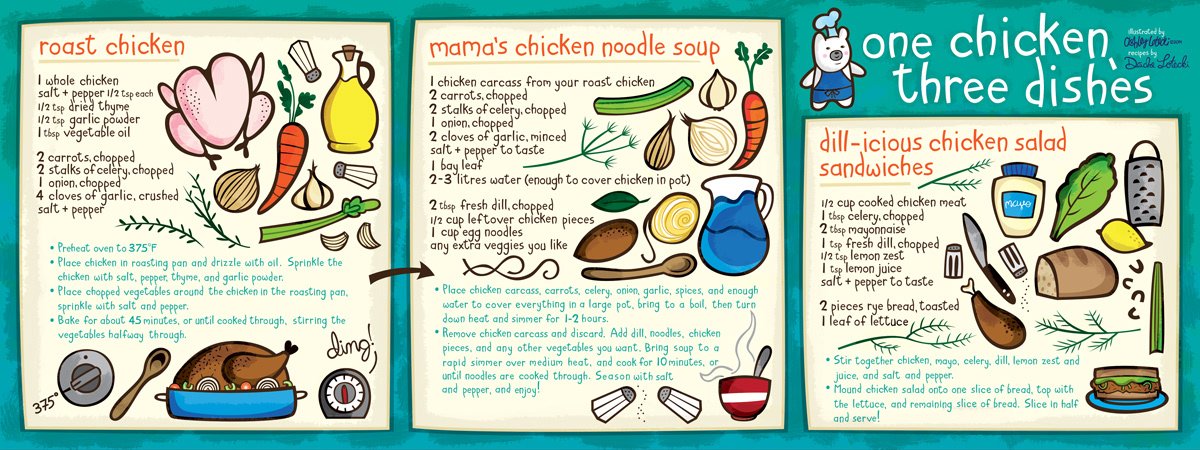 roast chicken
1 whole chicken
salt + pepper 1/2 tsp each
1/2 tsp dried thyme
1/2 tsp garlic powder
1 tbsp vegetable oil
2 carrots, chopped
2 stalks of celery, chopped
1 onion, chopped
4 cloves of garlic, crushed
salt + pepper
• Preheat oven to 375°F
• Place chicken in roasting pan and drizzle with oil. Sprinkle the
chicken with salt, pepper, thyme, and garlic powder.
• Place chopped vegetables around the chicken in the roasting pan,
sprinkle with salt and pepper.
• Bake for about 45 minutes, or until cooked through, stirring the
vegetables halfway through.
ding!
375°
mama's chicken noodle soup
1 chicken carcass from your roast chicken
2 carrots, chopped
2 stalks of celery, chopped
1 onion, chopped
2 cloves of garlic, minced
salt + pepper to taste
1 bay leaf
2-3 litres water (enough to cover chicken in pot)
2 tbsp fresh dill, chopped
1/2 cup leftover chicken pieces
1 cup egg noodles
any extra veggies you like
• Place chicken carcass, carrots, celery, onion, garlic, spices, and enough
water to cover everything in a large pot, bring to a boil, then turn
down heat and simmer for 1-2 hours.
• Remove chicken carcass and discard. Add dill, noodles, chicken
pieces, and any other vegetables you want. Bring soup to a
rapid simmer over medium heat, and cook for 10 minutes, or
until noodles are cooked through. Season with salt
and pepper, and enjoy!
one chicken,
three dishes
illustrated by
recipes by
dill-icious chicken salad
sandwiches
1/2 cup cooked chicken meat
1 tbsp celery, chopped
2 tbsp mayonnaise
1 tsp fresh dill, chopped
1/2 tsp lemon zest
1 tsp lemon juice
salt + pepper to taste
2 pieces rye bread, toasted
1 leaf of lettuce
mayo
• Stir together chicken, mayo, celery, dill, lemon zest and
juice, and salt and pepper.
• Mound chicken salad onto one slice of bread, top with
the lettuce, and remaining slice of bread. Slice in half
and serve!